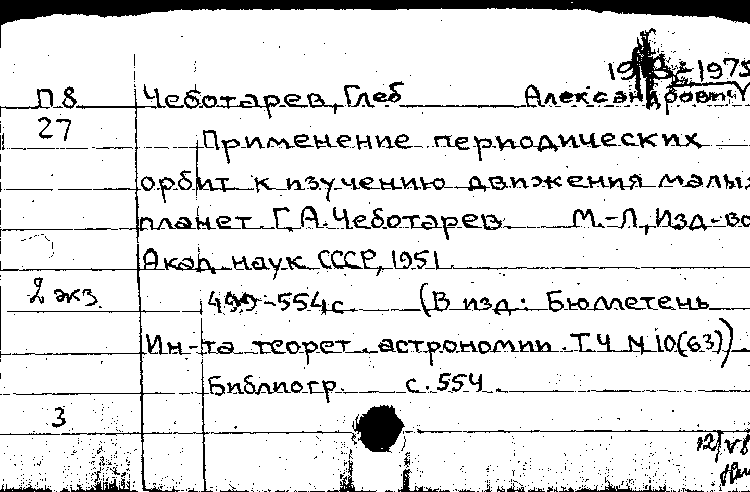 1913-1975
П8 Чеботарев, Глеб Александрович
27 Применение периодических
орбит к изучению движения малых
планет. Г.А.Чеботарев. М.-Л, Изд-во
Акад. наук СССР, 1951.
2 экз. 499-554с. (В изд: Бюллетень
Ин-та теорет. астрономии. Т.4 № 10(63))
Библиогр. с. 554.
3